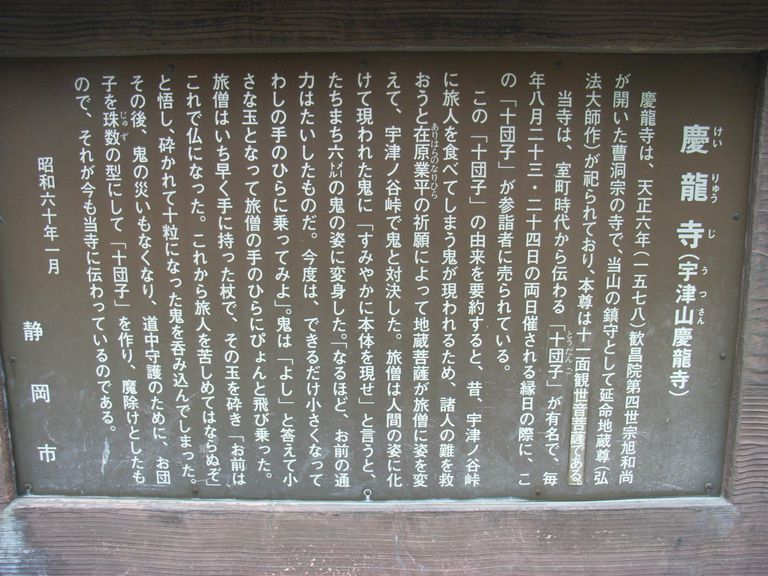 慶龍寺(宇津山慶龍寺)
けい りゅう じ うつさん
慶龍寺は、天正六年(一五七八)歓昌院第四世宗旭和尚
が開いた曹洞宗の寺で、当山の鎮守として延命地蔵尊(弘
法大師作)が祀られており、本尊は十一面観世音菩薩である。
当寺は、室町時代から伝わる「十団子」が有名で、毎
とうだんご
年八月二十三・二十四日の両日催される縁日の際に、こ
の「十団子」が参詣者に売られている。
この「十団子」の由来を要約すると、昔、宇津ノ谷峠
に旅人を食べてしまう鬼が現われるため、諸人の難を救
おうと在原業平の祈願によって地蔵菩薩が旅僧に姿を変
ありはらのなりひら
えて、宇津ノ谷峠で鬼と対決した。旅僧は人間の姿に化
けて現われた鬼に「すみやかに本体を現せ」と言うと、
たちまち六メートルの鬼の姿に変身した。「なるほど、お前の通
力はたいしたものだ。今度は、できるだけ小さくなって
わしの手のひらに乗ってみよ」。鬼は「よし」と答えて小
さな玉となって旅僧の手のひらにぴょんと飛び乗った。
旅僧はいち早く手に持った杖で、その玉を砕き「お前は
これで仏になった。これから旅人を苦しめてはならぬぞ」
と悟し、砕かれて十粒になった鬼を呑み込んでしまった。
その後、鬼の災いもなくなり、道中守護のために、お団
子を珠数の型にして「十団子」を作り、魔除けとしたも
じゅず
ので、それが今も当寺に伝わっているのである。
昭和六十年一月
静岡市